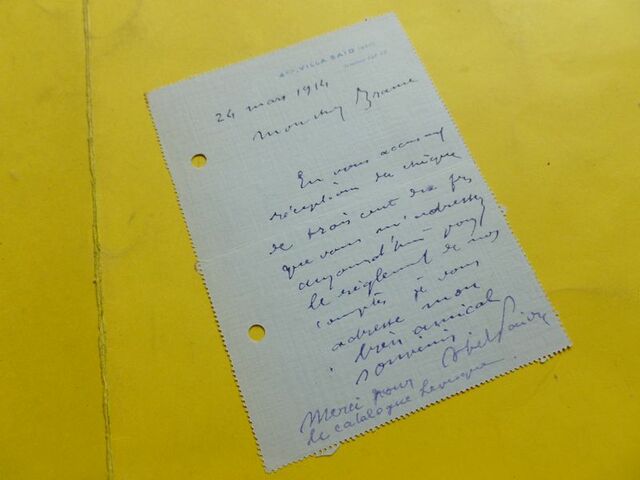 VILLA SAÏD
24 mars 1914
Mon cher Brame
En vous accusant
réception du chèque
de trois cent dix frs
que vous m'adressez
aujourd'hui pour
le règlement de nos
comptes je vous
adresse mon
très amical
souvenir. Abel
Merci pour
le catalogue